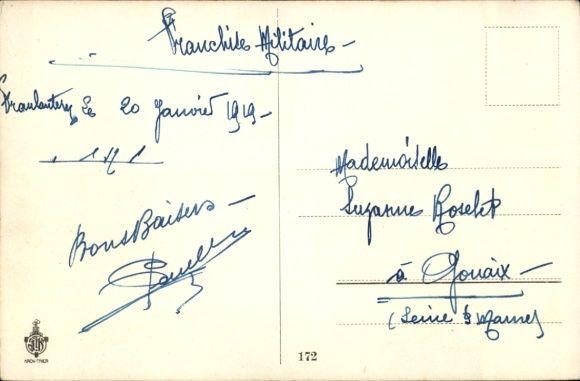 Franchise Militaire –
Fraulautern, le 20 Janvier 1919 –
Bons Baisers –
Mademoiselle
Suzanne Roselet
à Gouaix –
(Seine & Marne)
KRON-TRIER
172